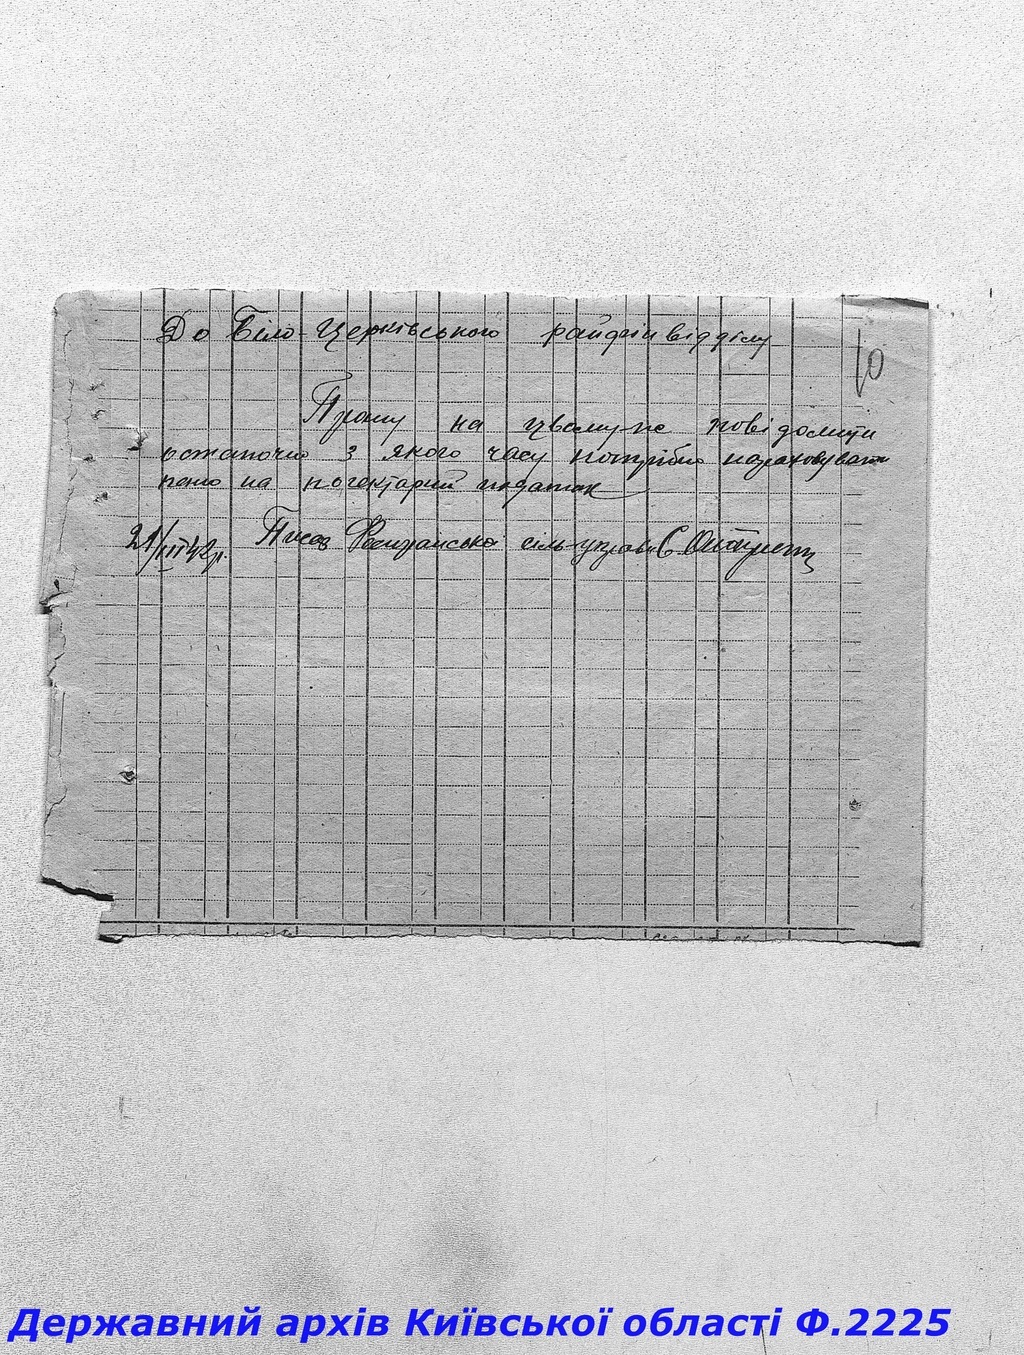 До Біло-Церківського райфінвідділу
10
Прошу на цьому же повідомити
остаточно з якого часу потрібно нараховувати
пеню на погектарний податок
21/III 42р. Писар сільуправи
Державний архів Київської області Ф.2225